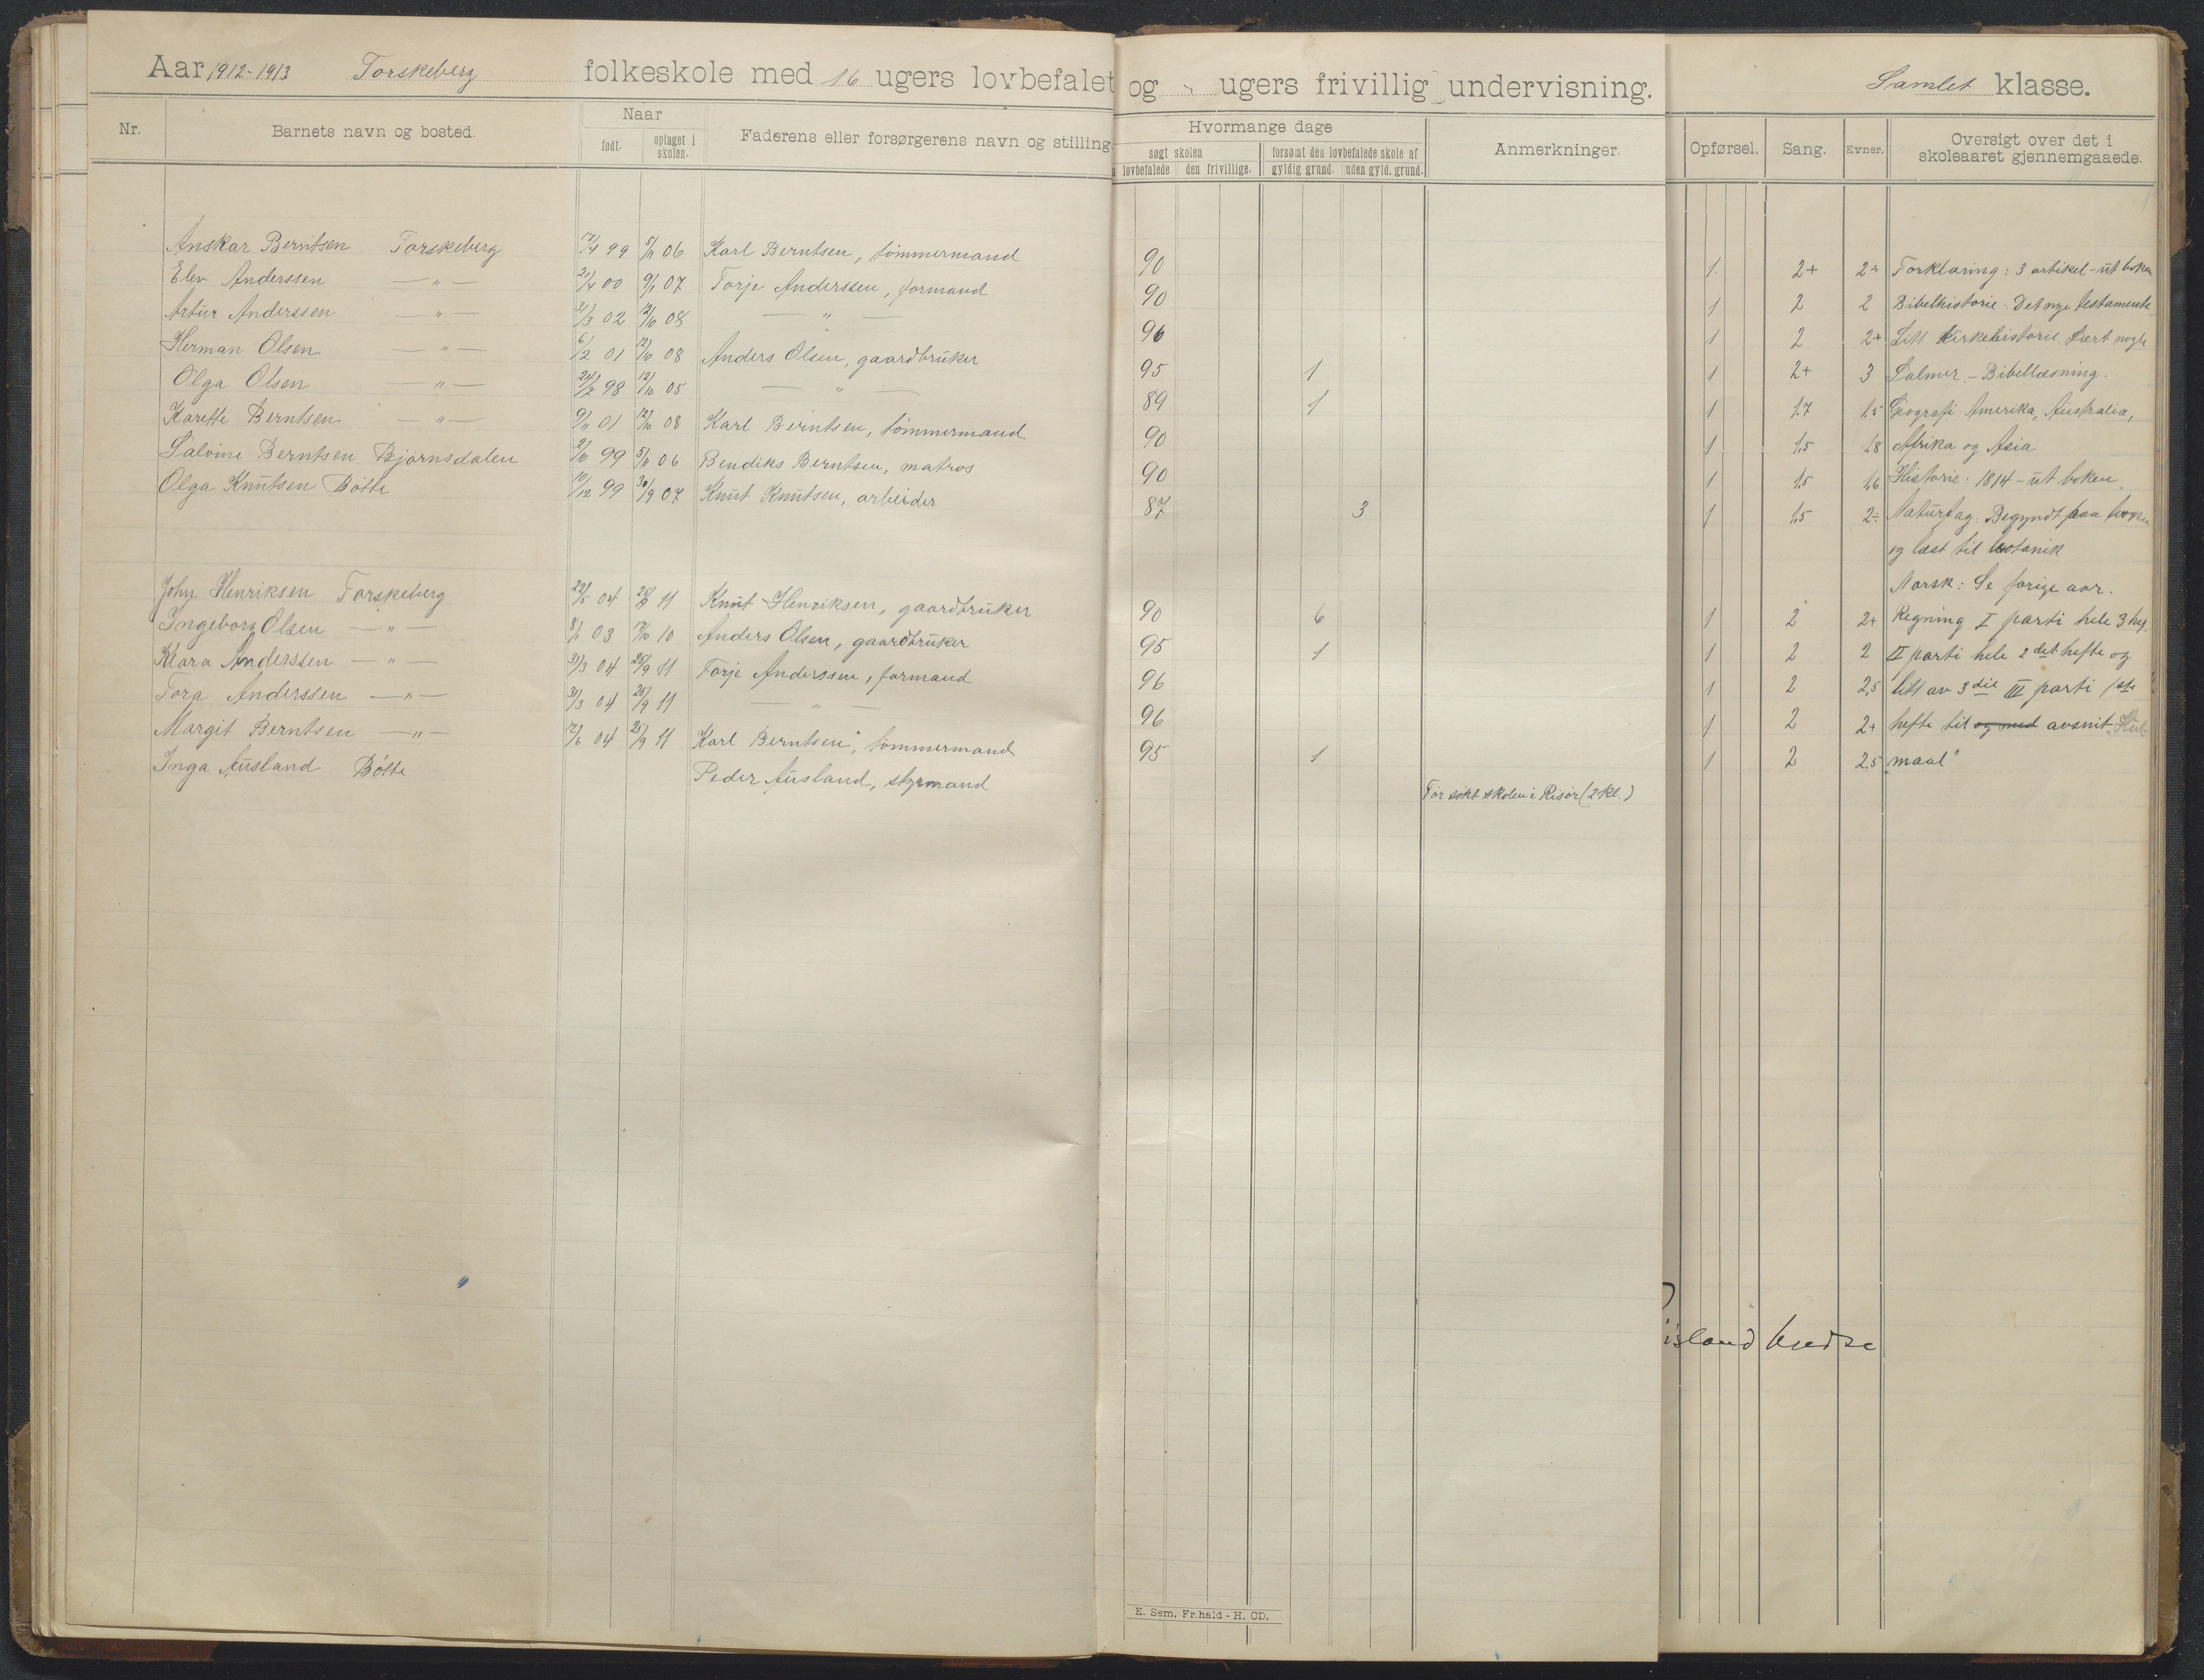 Aar 1912-1913 Torskeberg folkeskole med 16 ugers lovbefalet og ugers frivillig undervisning. Samlet klasse.
Nr. Barnets navn og bosted. Naar født. optaget i skolen. Faderens eller forsørgerens navn og stilling. Hvormange dage søgt skolen lovbefalede den frivillige. forsømt den lovbefalede skole af gyldig grund. uden gyld. grund. Anmerkninger. Opførsel. Sang. Evner. Oversigt over det i skoleaaret gjennemgaaede.
Anskar Berntsen Torskeberg 17/4 99 5/11 06 Karl Berntsen, tömmermand 90 1 2+ 2÷ Forklaring: 3 artikel - ut boken
Elev Anderssen — " — 21/4 00 9/1 07 Torje Anderssen, formand 90 1 2 2 Bibelhistorie. Det nye testamente
Artur Anderssen — " — 31/3 02 12/10 08 — " — 96 1 2 2+ Litt kirkehistorie. Lært nogle
Herman Olsen — " — 6/2 01 12/10 08 Anders Olsen, gaardbruker 95 1 1 2+ 3 Salmer. - Bibellæsning.
Olga Olsen — " — 24/2 98 12/10 05 — " — 89 1 1 1.7 1.5 Geografi. Amerika, Australia,
Karethe Berntsen — " — 9/11 01 12/10 08 Karl Berntsen, tömmermand 90 1 1,5 1,8 Afrika og Asia
Salvine Berntsen Bjørnsdalen 2/10 99 5/11 06 Bendiks Berntsen, matros 90 1 1,5 1,6 Historie: 1814 - ut boken.
Olga Knutsen Bötte 10/12 99 30/9 07 Knut Knutsen, arbeider 87 3 1 1,5 2÷ Naturfag: Begyndt paa
og læst til botanik
Norsk: Se forige aar.
John Henriksen Torskeberg 22/5 04 25/9 11 Knut Henriksen, gaardbruker 90 6 1 2 2+ Regning I parti hele 3 hef.
Ingeborg Olsen — " — 8/1 03 17/10 10 Anders Olsen, gaardbruker 95 1 1 2 2 II parti hele 2det hefte og
Klara Anderssen — " — 31/3 04 25/9 11 Torje Anderssen, formand 96 1 2 2,5 litt av 3die III parti 1ste
Tora Anderssen — " — 31/3 04 25/9 11 — " — 96 1 2 2+ hefte til og med avsnit
Margit Berntsen — " — 12/6 04 25/9 11 Karl Berntsen, tömmermand 95 1 1 2 2,5 maal"
Inga Ausland Bötte Peder Ausland, styrmand Før søkt skolen i Risør (2 kl.)
E. Sem, Fr.hald - H. CD.